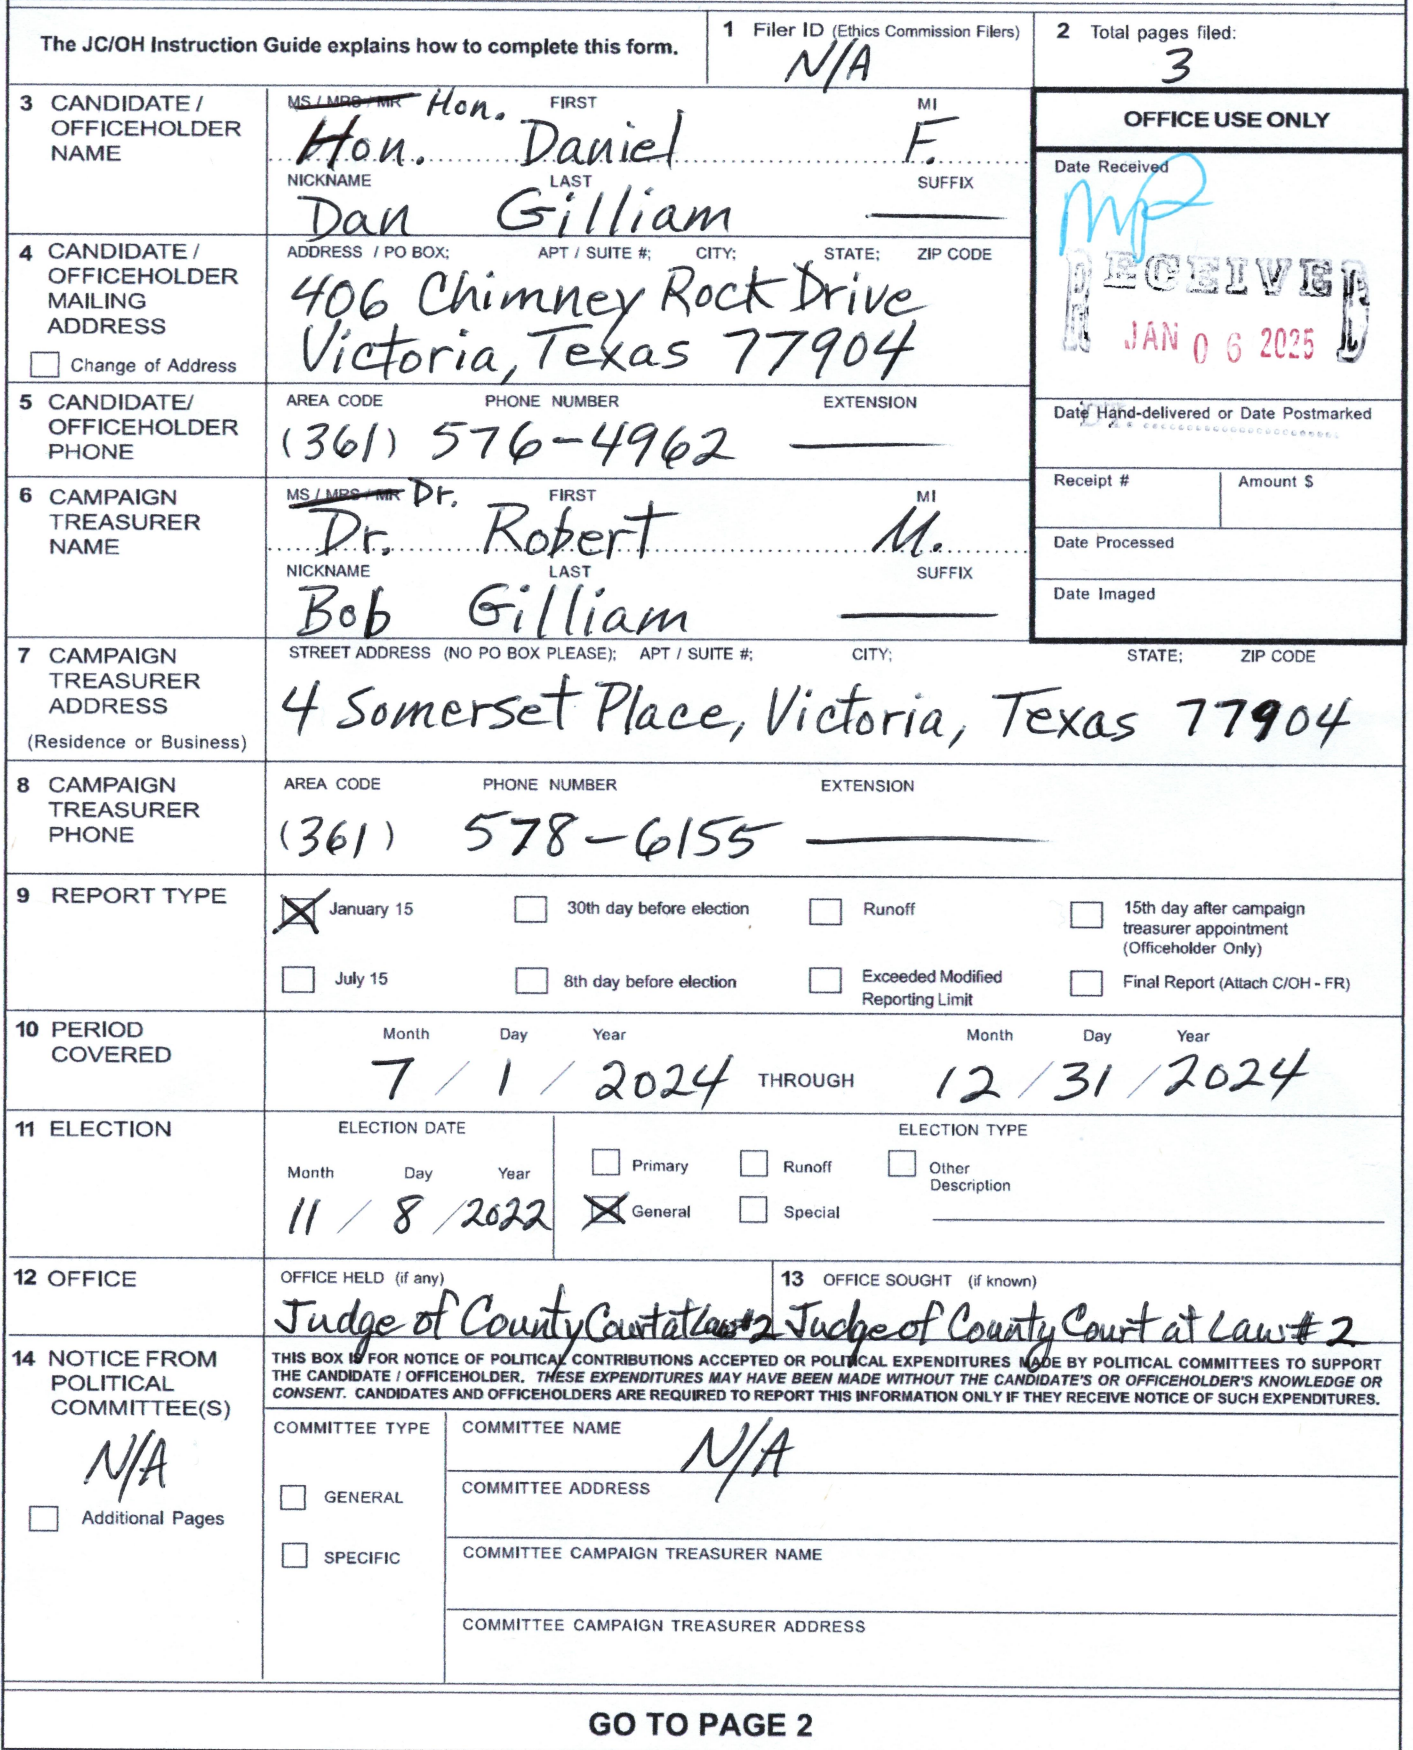 The JC/OH Instruction Guide explains how to complete this form.
1 Filer ID (Ethics Commission Filers)
N/A
2 Total pages filed:
3
3 CANDIDATE / OFFICEHOLDER NAME
MS / MRS / MR Hon. FIRST MI
Hon. Daniel F.
NICKNAME LAST SUFFIX
Dan Gilliam
OFFICE USE ONLY
Date Received
RECEIVED
JAN 06 2025
Date Hand-delivered or Date Postmarked
Receipt # Amount $
Date Processed
Date Imaged
4 CANDIDATE / OFFICEHOLDER MAILING ADDRESS
Change of Address
ADDRESS / PO BOX; APT / SUITE #; CITY; STATE; ZIP CODE
406 Chimney Rock Drive
Victoria, Texas 77904
5 CANDIDATE/ OFFICEHOLDER PHONE
AREA CODE PHONE NUMBER EXTENSION
(361) 576-4962
6 CAMPAIGN TREASURER NAME
MS / MRS / MR Dr. FIRST MI
Dr. Robert M.
NICKNAME LAST SUFFIX
Bob Gilliam
7 CAMPAIGN TREASURER ADDRESS
(Residence or Business)
STREET ADDRESS (NO PO BOX PLEASE); APT / SUITE #; CITY; STATE; ZIP CODE
4 Somerset Place, Victoria, Texas 77904
8 CAMPAIGN TREASURER PHONE
AREA CODE PHONE NUMBER EXTENSION
(361) 578-6155
9 REPORT TYPE
January 15 30th day before election Runoff 15th day after campaign treasurer appointment (Officeholder Only)
July 15 8th day before election Exceeded Modified Reporting Limit Final Report (Attach C/OH - FR)
10 PERIOD COVERED
Month Day Year Month Day Year
7 / 1 / 2024 THROUGH 12 / 31 / 2024
11 ELECTION
ELECTION DATE ELECTION TYPE
Month Day Year
11 / 8 / 2022
Primary Runoff Other Description
General Special
12 OFFICE
OFFICE HELD (if any)
Judge of County Court at Law #2
13 OFFICE SOUGHT (if known)
Judge of County Court at Law # 2
14 NOTICE FROM POLITICAL COMMITTEE(S)
N/A
Additional Pages
THIS BOX IS FOR NOTICE OF POLITICAL CONTRIBUTIONS ACCEPTED OR POLITICAL EXPENDITURES MADE BY POLITICAL COMMITTEES TO SUPPORT
THE CANDIDATE / OFFICEHOLDER. THESE EXPENDITURES MAY HAVE BEEN MADE WITHOUT THE CANDIDATE'S OR OFFICEHOLDER'S KNOWLEDGE OR
CONSENT. CANDIDATES AND OFFICEHOLDERS ARE REQUIRED TO REPORT THIS INFORMATION ONLY IF THEY RECEIVE NOTICE OF SUCH EXPENDITURES.
COMMITTEE TYPE
GENERAL
SPECIFIC
COMMITTEE NAME
N/A
COMMITTEE ADDRESS
COMMITTEE CAMPAIGN TREASURER NAME
COMMITTEE CAMPAIGN TREASURER ADDRESS
GO TO PAGE 2